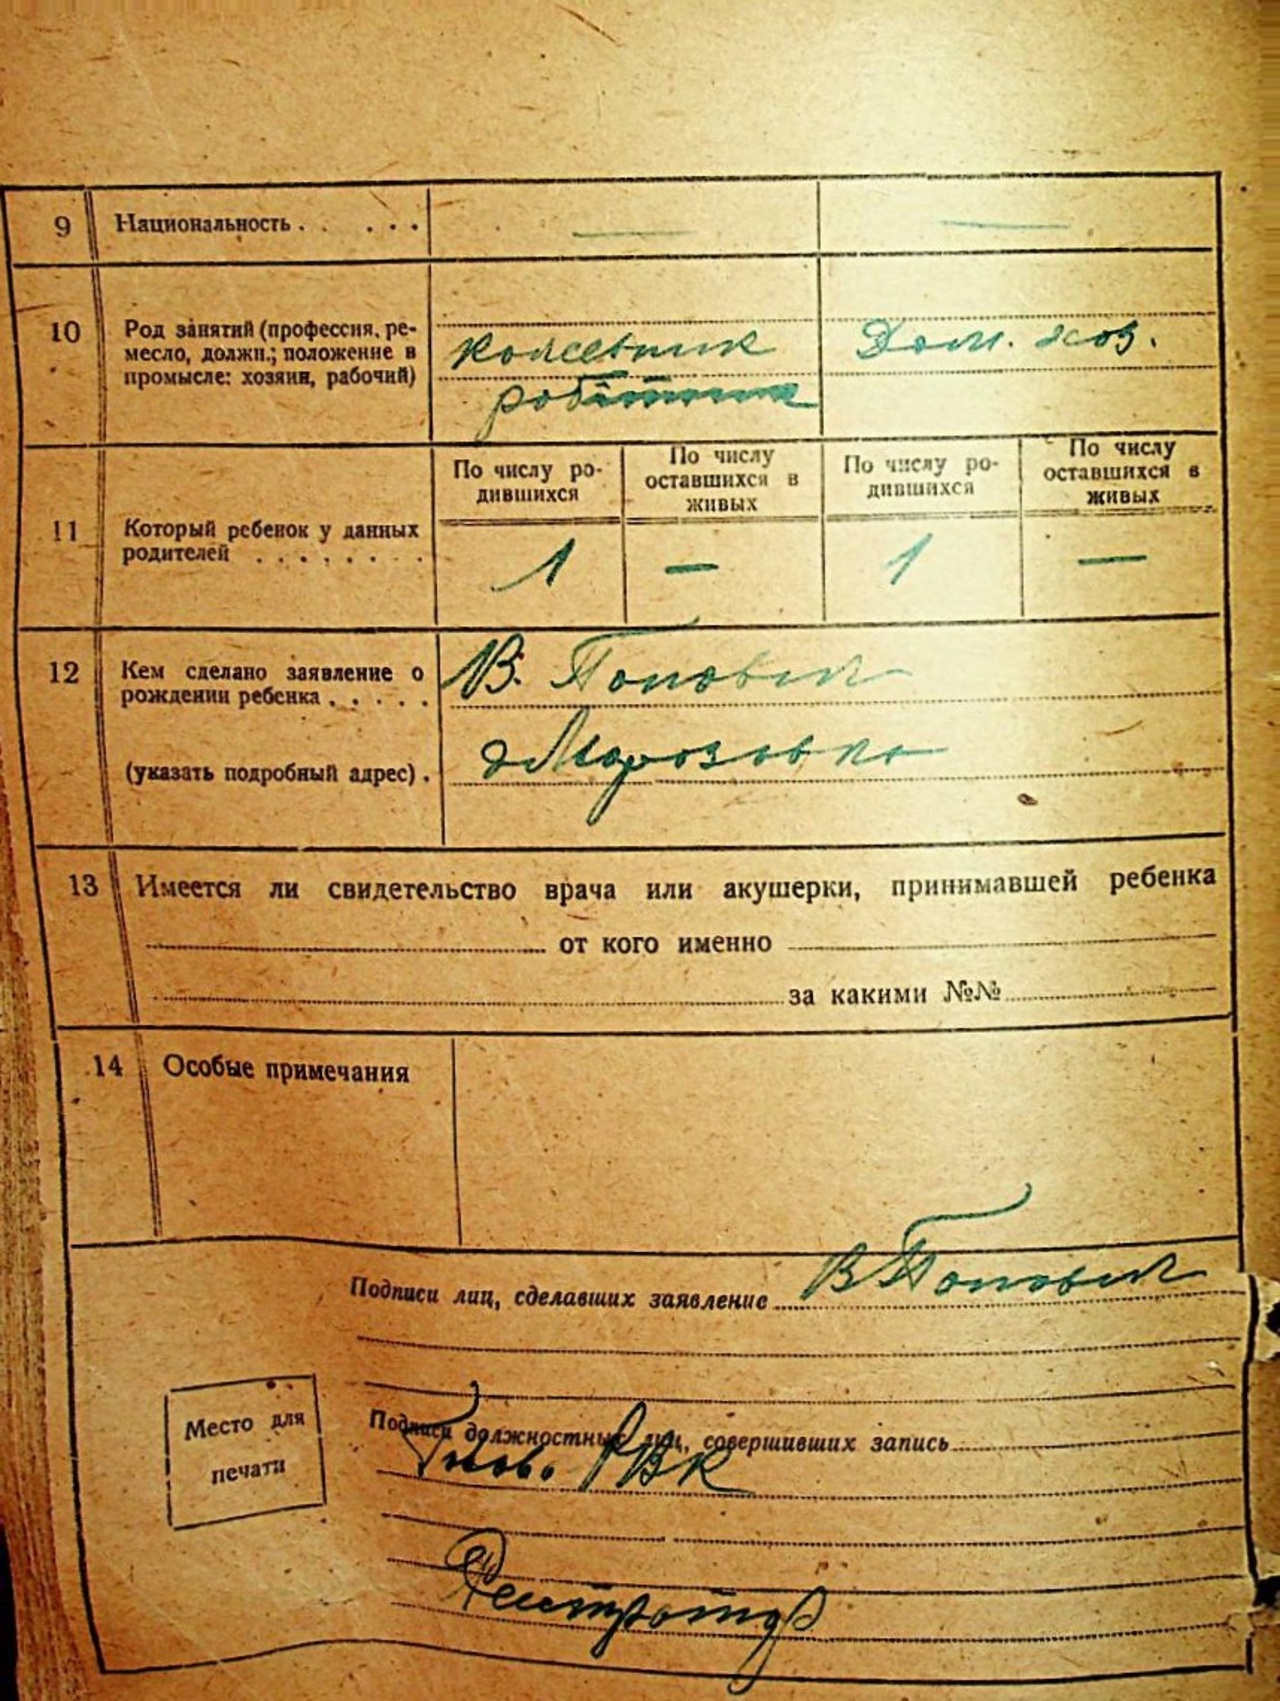 9 Национальность . . . . . — —
10 Род занятий (профессия, ре-
месло, должн.; положение в
промысле: хозяин, рабочий)
Дом. хоз.
11 Который ребенок у данных
родителей . . . . . . .
По числу ро-
дившихся
По числу
оставшихся в
живых
По числу ро-
дившихся
По числу
оставшихся в
живых
1 — 1 —
12 Кем сделано заявление о
рождении ребенка . . . . .
(указать подробный адрес) .
В. Попович
Морозовка
13 Имеется ли свидетельство врача или акушерки, принимавшей ребенка
от кого именно
за какими №№
14 Особые примечания
Подписи лиц, сделавших заявление В Попович
Место для
печати
Подписи должностных лиц, совершивших запись
РВК